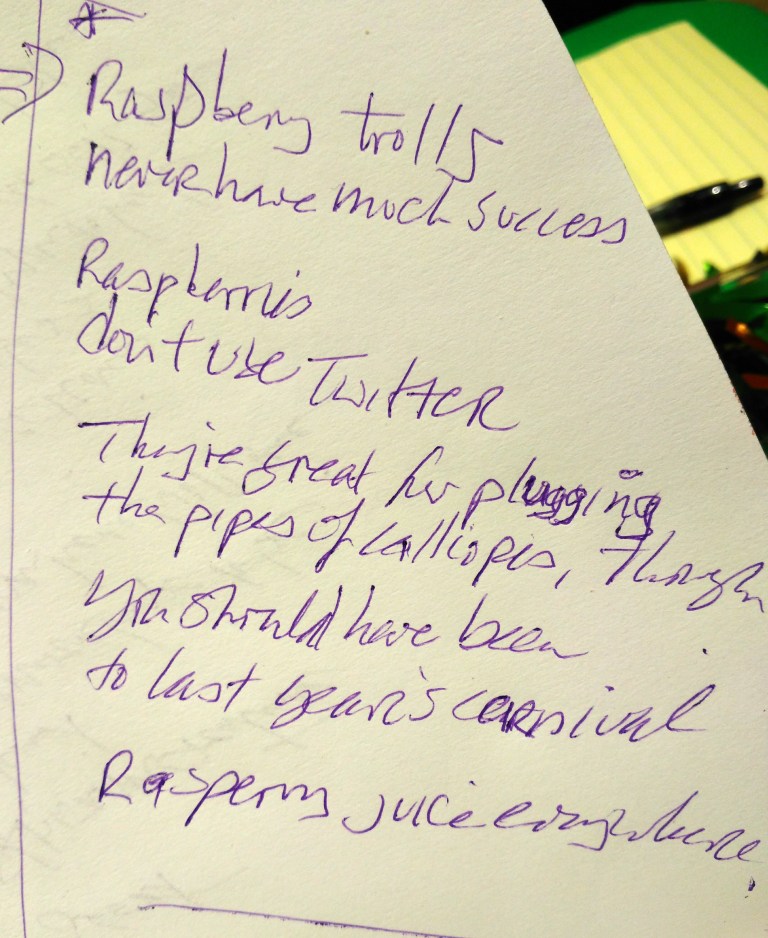 Raspberry trolls
never have much success
Raspberries
don't use Twitter
They're great for plugging
the pipes of calliopes, though
You should have been
to last year's carnival
Rasperry juice everywhere.